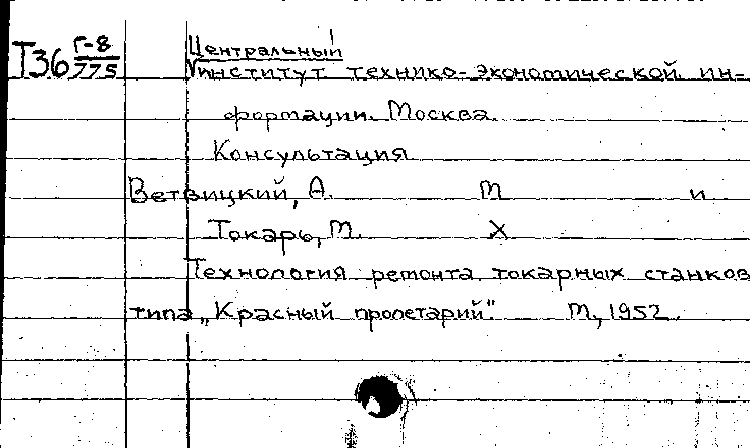 Т36 Г-8/775
Центральный
институт технико-экономической ин-
формации. Москва.
Консультация
Ветвицкий, А. М и
Токарь, М. X
Технология ремонта токарных станков
типа „Красный пролетарий". М, 1952.